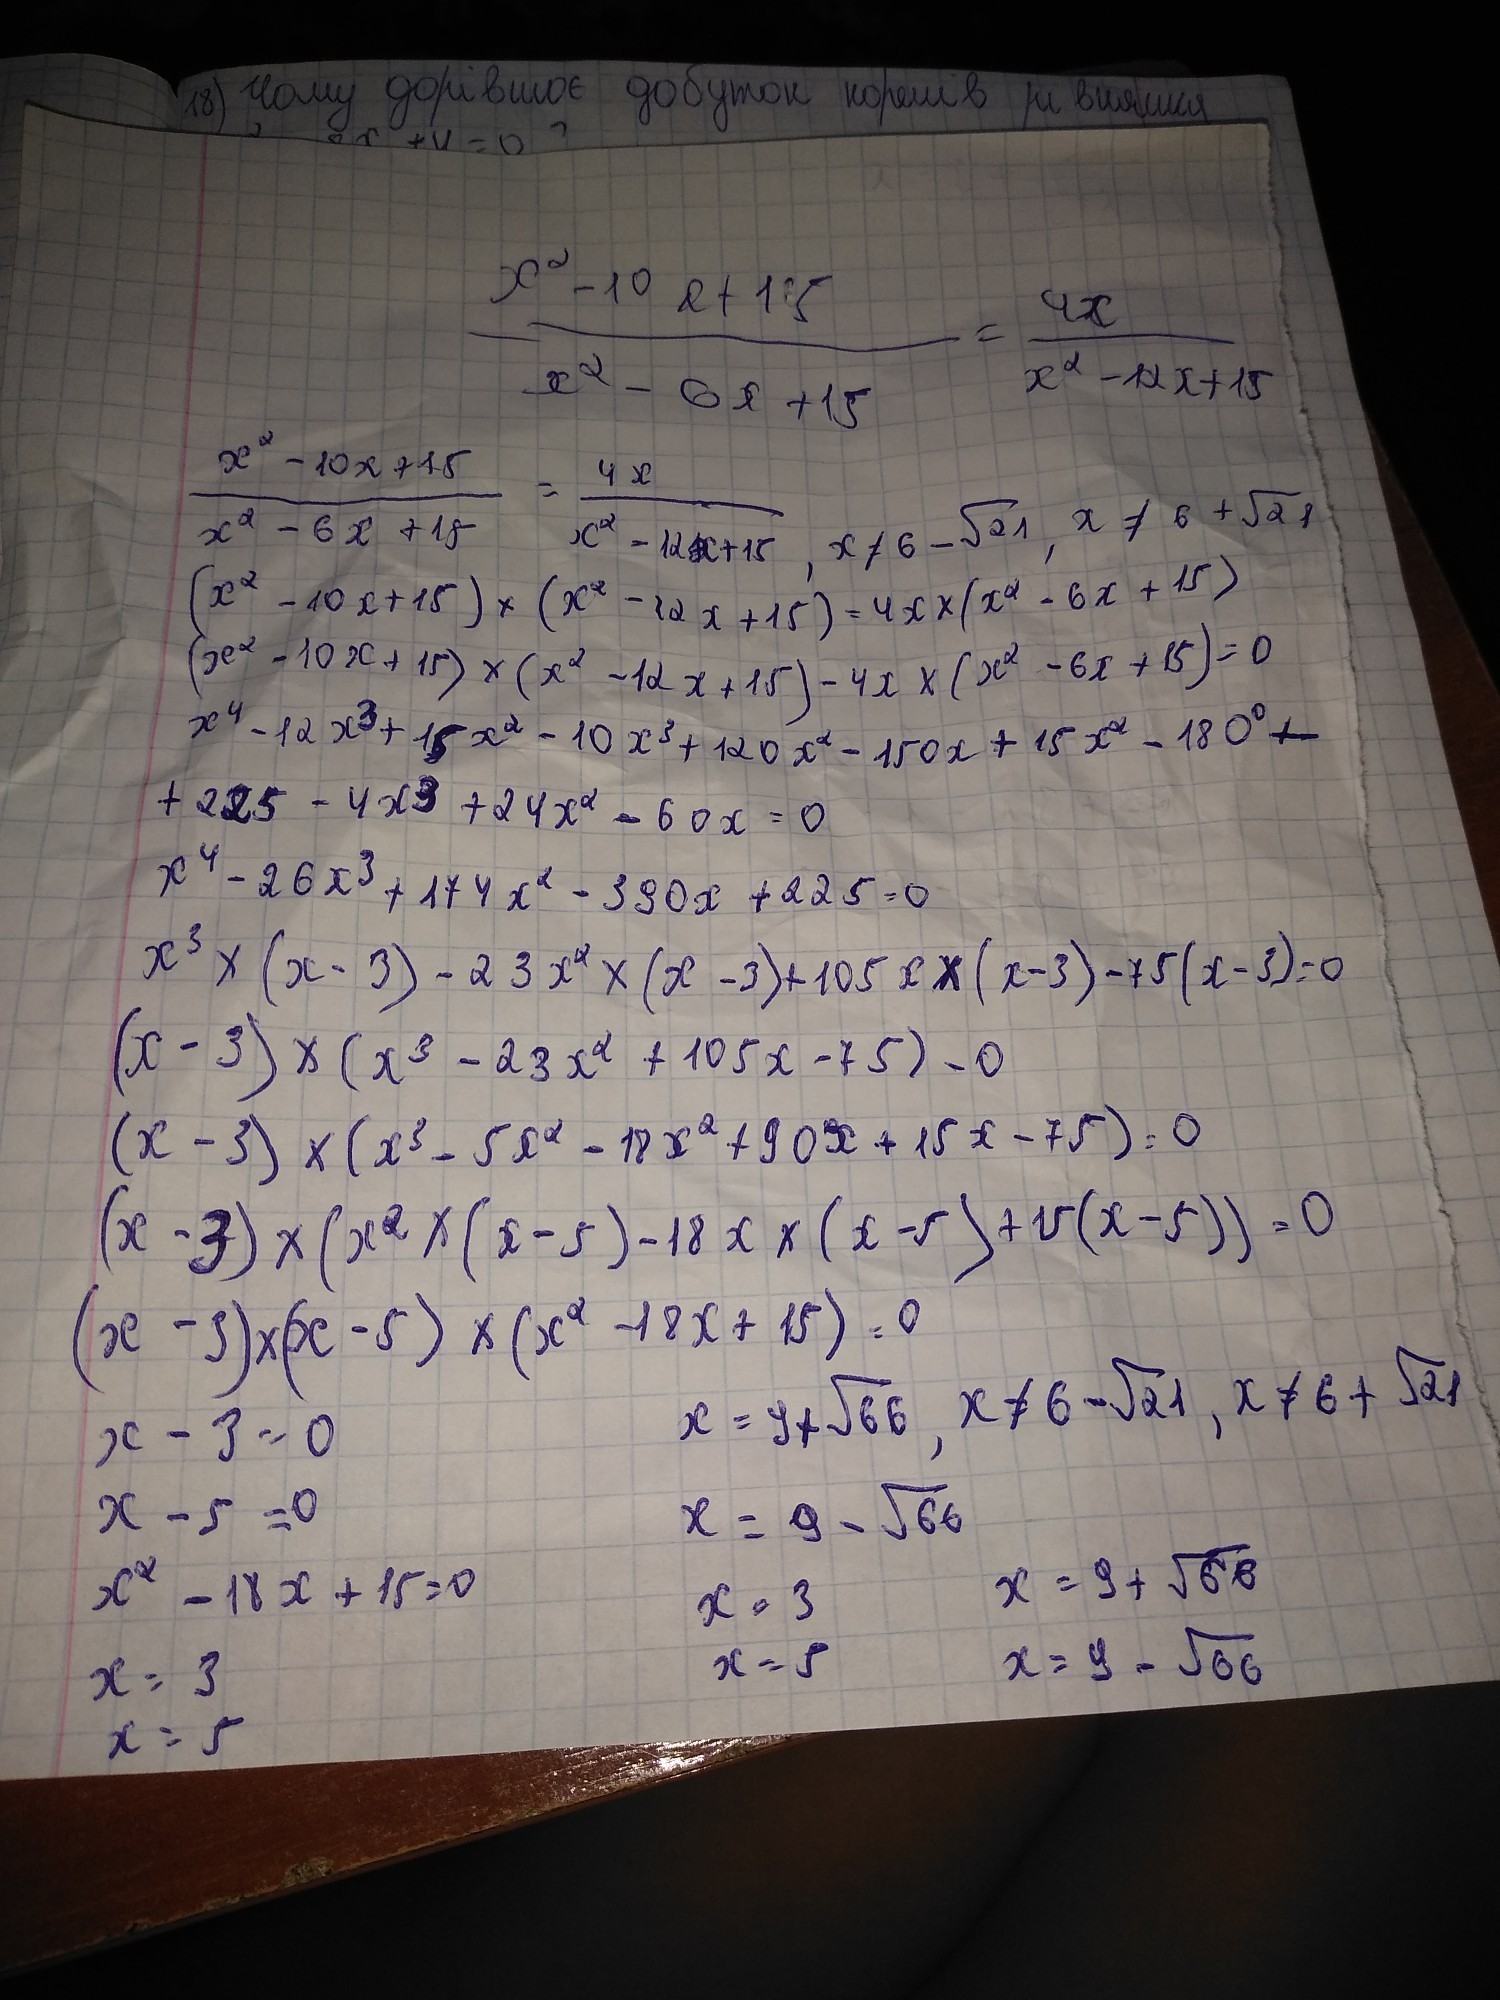 18) Чому дорівнює добуток коренів рівняння
x + 4 = 0 ?
x² - 10x + 15 / x² - 6x + 15 = 4x / x² - 12x + 15
x² - 10x + 15 / x² - 6x + 15 = 4x / x² - 12x + 15 , x ≠ 6 - √21 , x ≠ 6 + √21
(x² - 10x + 15) × (x² - 12x + 15) = 4x × (x² - 6x + 15)
(x² - 10x + 15) × (x² - 12x + 15) - 4x × (x² - 6x + 15) = 0
x⁴ - 12x³ + 15x² - 10x³ + 120x² - 150x + 15x² - 180⁰ +
+ 225 - 4x³ + 24x² - 60x = 0
x⁴ - 26x³ + 174x² - 390x + 225 = 0
x³ × (x - 3) - 23x² × (x - 3) + 105x × (x - 3) - 75(x - 3) = 0
(x - 3) × (x³ - 23x² + 105x - 75) - 0
(x - 3) × (x³ - 5x² - 18x² + 90x + 15x - 75) = 0
(x - 3) × (x² × (x - 5) - 18x × (x - 5) + 15(x - 5)) = 0
(x - 3) × (x - 5) × (x² - 18x + 15) = 0
x - 3 = 0
x - 5 = 0
x² - 18x + 15 = 0
x = 3
x = 5
x = 9 + √66 , x ≠ 6 - √21 , x ≠ 6 + √21
x = 9 - √66
x = 3
x = 5
x = 9 + √66
x = 9 - √66